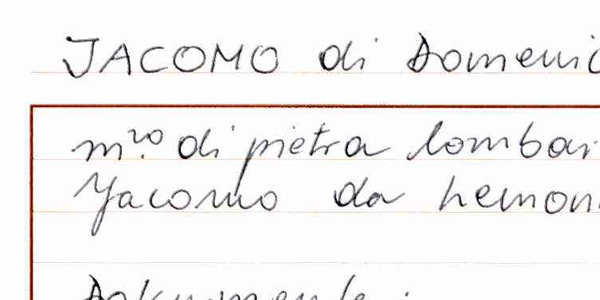 JACOMO di Domenic
m.ro di pietra lombar
Jacomo da hemon
Dokumente: